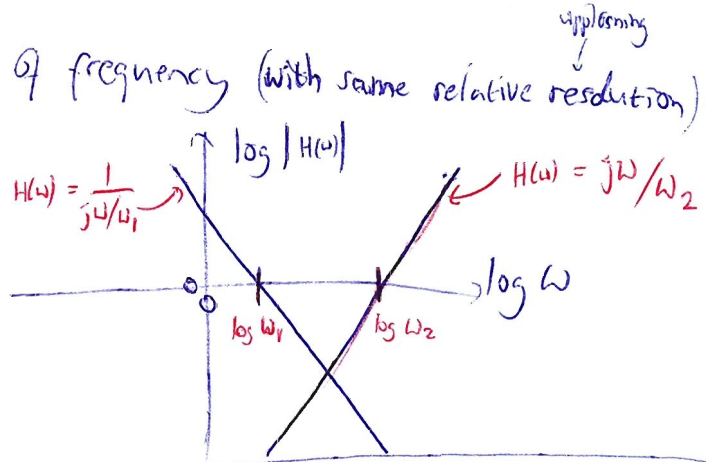 upplösning
of frequency (with same relative resolution)
log |H(ω)|
H(ω) = 1/(jω/ω₁)
H(ω) = jω/ω₂
0
0
log ω
log ω₁
log ω₂